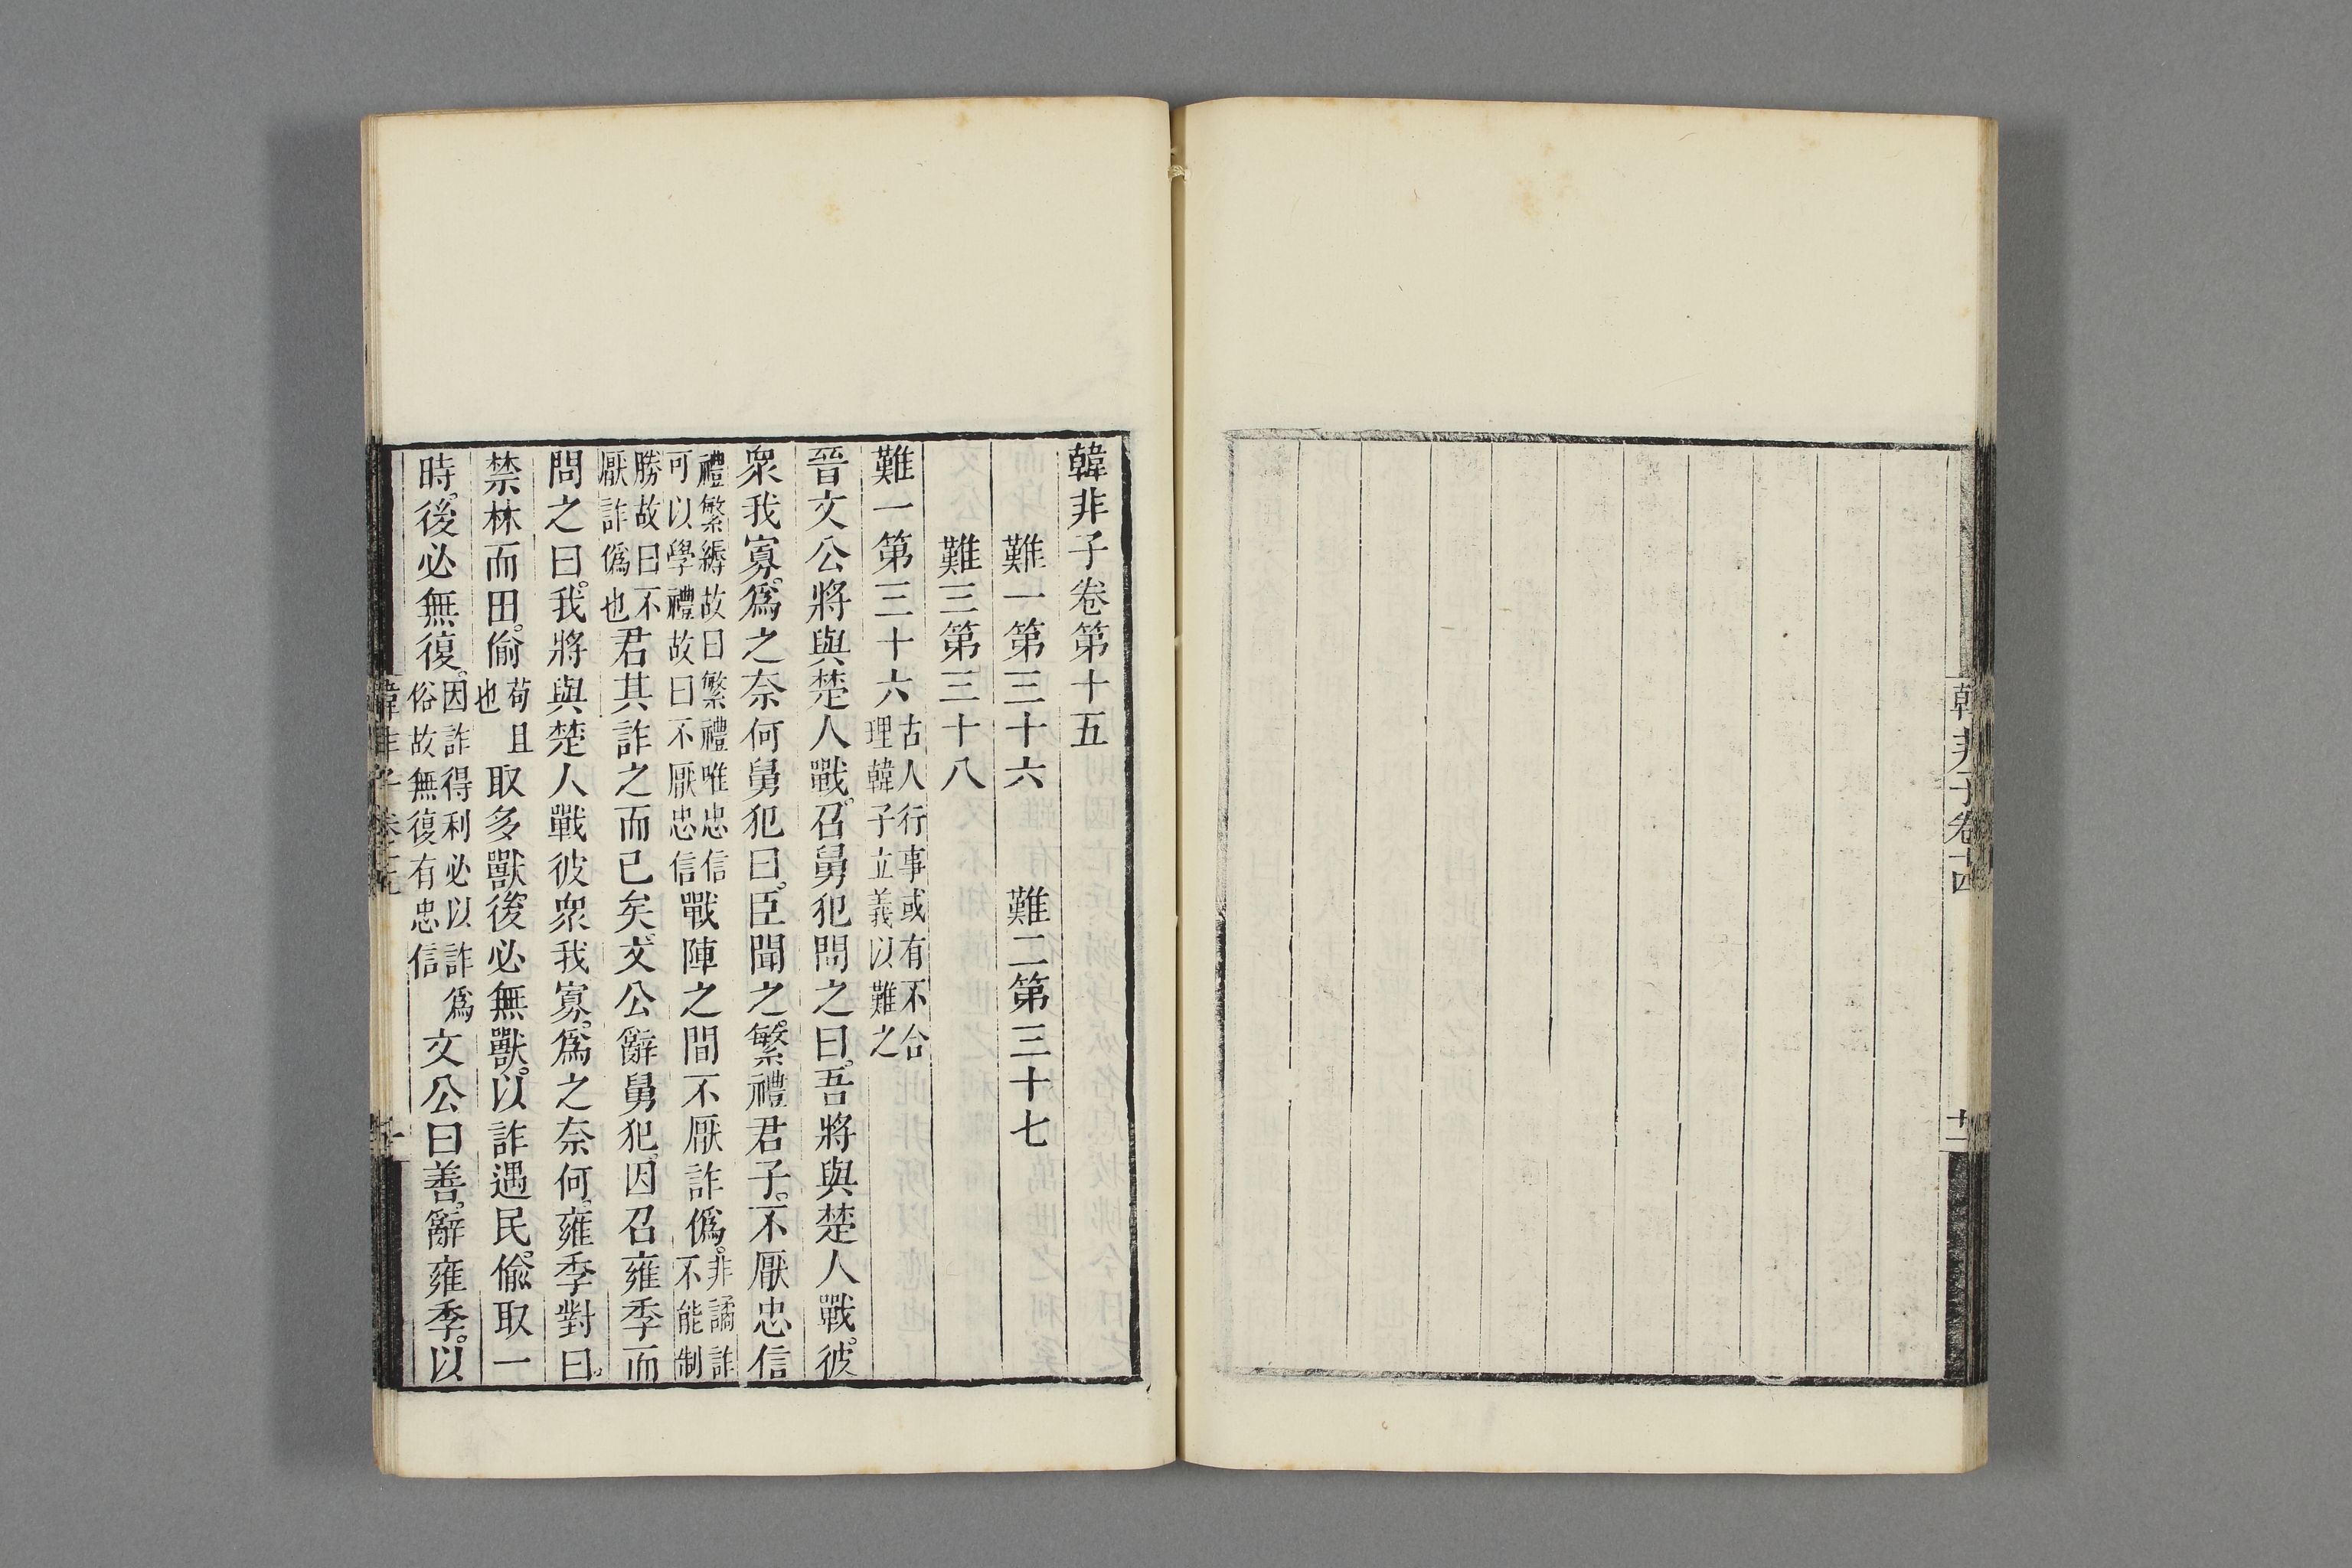 韓非子卷十四
十二
韓非子卷第十五
難一第三十六　難二第三十七
難三第三十八
難一第三十六古人行事或有不合理韓子立義以難之
晉文公將與楚人戰。召舅犯問之曰。吾將與楚人戰。彼
衆我寡。爲之奈何舅犯曰。臣聞之。繁禮君子。不厭忠信
禮繁縟故曰繁禮唯忠信可以學禮故曰不厭忠信戰陣之間不厭詐僞。非譎詐不能制
勝故曰不厭詐僞也君其詐之而已矣。文公辭舅犯。因召雍季而
問之曰。我將與楚人戰彼衆我寡。爲之奈何。雍季對曰。
禁林而田。偷苟且也取多獸後必無獸。以詐遇民。偸取一
時。後必無復。因詐得利必以詐爲俗故無復有忠信文公曰善。辭雍季。以
韓非子卷十五
一